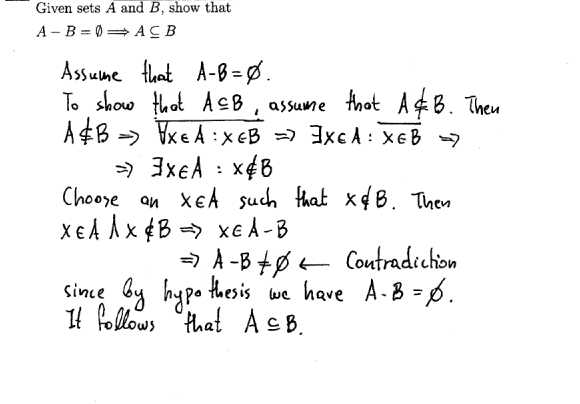 Given sets A and B, show that
A − B = ∅ ⟹ A ⊆ B
Assume that A-B=∅.
To show that A⊆B, assume that A⊈B. Then
A⊈B ⇒ \overline{∀x∈A : x∈B} ⇒ ∃x∈A : \overline{x∈B} ⇒
⇒ ∃x∈A : x∉B
Choose an x∈A such that x∉B. Then
x∈A ∧ x∉B ⇒ x∈A-B
⇒ A-B≠∅ ← Contradiction
since by hypothesis we have A-B=∅.
It follows that A⊆B.